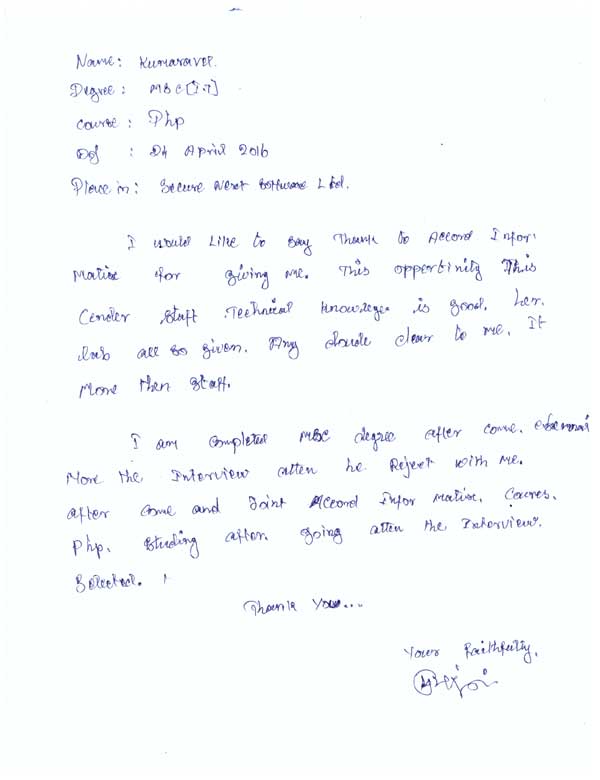 Name: Kumaravel.
Degree: MSC[I.T]
Course: Php
DOJ : 04 April 2016
Place in: Secure Next Software Ltd.
I would Like to say Thank to Accord Infor
Matix for giving me. This oppertinity This
Cender staff Technical knowlege is good. Her
lab all so given. Any doude clear to me. It
More then staff.
I am completed MSC degree after come.
More the Interview atten he Reject with Me.
after come and Joint Accord Infor Matix. Coures.
Php. studing after going atten the Interview.
Selected.
Thank You...
Your Faithfully,